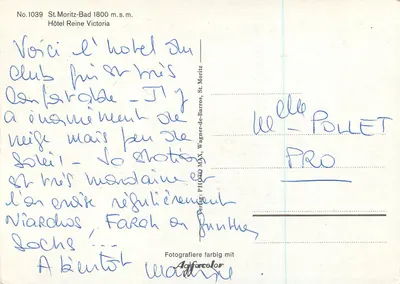 No. 1039 St. Moritz-Bad 1800 m.s.m.
Hôtel Reine Victoria
Voici l'hôtel du
club qui est très
confortable - Il y
a énormément de
neige mais peu de
soleil - La station
est très mondaine et
l'on croise régulièrement
Niarchos, Farah ou Gunther
Sachs ...
A bientôt
Melle POLLET
PRO
PHOTO MAX, Wagner-de-Barros, St. Moritz
Fotografiere farbig mit
Agfacolor